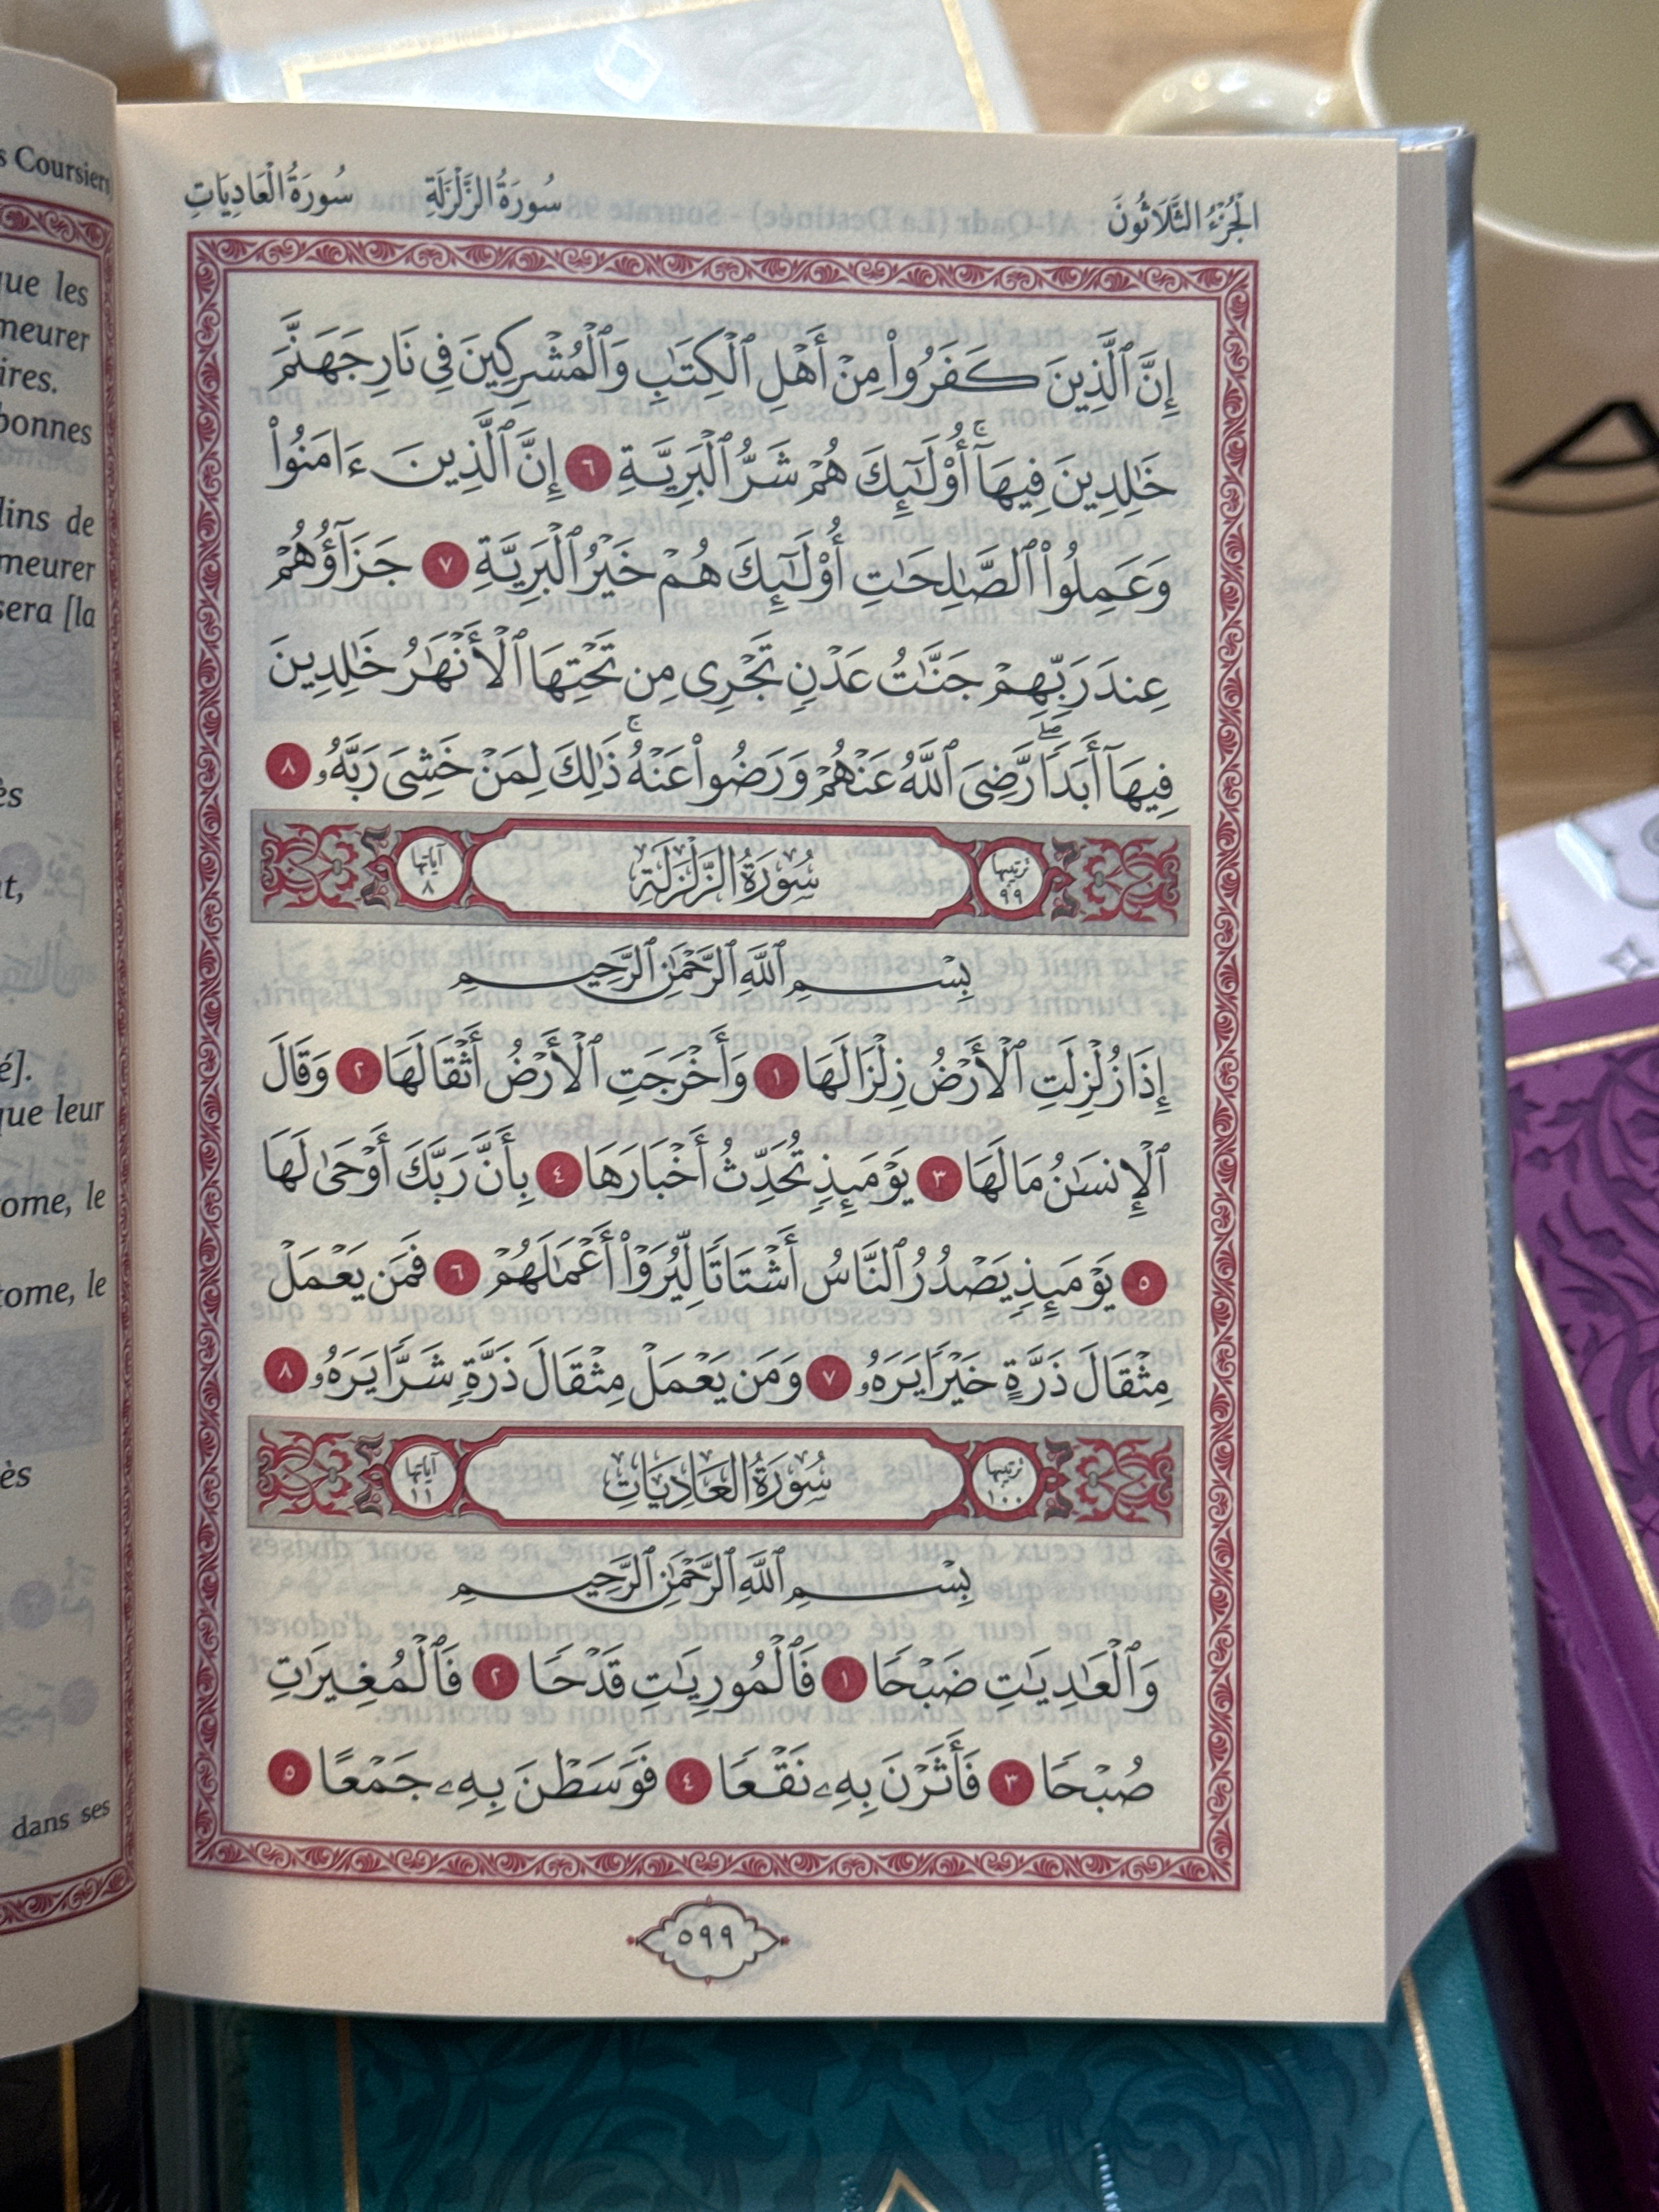 الجزء الثلاثون
سورة الزلزلة
سورة العاديات
إِنَّ ٱلَّذِينَ كَفَرُواْ مِنْ أَهْلِ ٱلْكِتَٰبِ وَٱلْمُشْرِكِينَ فِى نَارِ جَهَنَّمَ
خَٰلِدِينَ فِيهَآ ۚ أُوْلَٰٓئِكَ هُمْ شَرُّ ٱلْبَرِيَّةِ ٦ إِنَّ ٱلَّذِينَ ءَامَنُواْ
وَعَمِلُواْ ٱلصَّٰلِحَٰتِ أُوْلَٰٓئِكَ هُمْ خَيْرُ ٱلْبَرِيَّةِ ٧ جَزَآؤُهُمْ
عِندَ رَبِّهِمْ جَنَّٰتُ عَدْنٍ تَجْرِى مِن تَحْتِهَا ٱلْأَنْهَٰرُ خَٰلِدِينَ
فِيهَآ أَبَدًا ۖ رَّضِىَ ٱللَّهُ عَنْهُمْ وَرَضُواْ عَنْهُ ۚ ذَٰلِكَ لِمَنْ خَشِىَ رَبَّهُۥ ٨
ترتيبها ٩٩
سُورَةُ الزَّلْزَلَةِ
آياتها ٨
بِسْمِ ٱللَّهِ ٱلرَّحْمَٰنِ ٱلرَّحِيمِ
إِذَا زُلْزِلَتِ ٱلْأَرْضُ زِلْزَالَهَا ١ وَأَخْرَجَتِ ٱلْأَرْضُ أَثْقَالَهَا ٢ وَقَالَ
ٱلْإِنسَٰنُ مَا لَهَا ٣ يَوْمَئِذٍ تُحَدِّثُ أَخْبَارَهَا ٤ بِأَنَّ رَبَّكَ أَوْحَىٰ لَهَا
٥ يَوْمَئِذٍ يَصْدُرُ ٱلنَّاسُ أَشْتَاتًا لِّيُرَوْاْ أَعْمَٰلَهُمْ ٦ فَمَن يَعْمَلْ
مِثْقَالَ ذَرَّةٍ خَيْرًا يَرَهُۥ ٧ وَمَن يَعْمَلْ مِثْقَالَ ذَرَّةٍ شَرًّا يَرَهُۥ ٨
ترتيبها ١٠٠
سُورَةُ العَادِيَاتِ
آياتها ١١
بِسْمِ ٱللَّهِ ٱلرَّحْمَٰنِ ٱلرَّحِيمِ
وَٱلْعَٰدِيَٰتِ ضَبْحًا ١ فَٱلْمُورِيَٰتِ قَدْحًا ٢ فَٱلْمُغِيرَٰتِ
صُبْحًا ٣ فَأَثَرْنَ بِهِۦ نَقْعًا ٤ فَوَسَطْنَ بِهِۦ جَمْعًا ٥
٥٩٩
s Coursiers
que les
meurer
ires.
bonnes
lins de
meurer
sera [la
ès
t,
é].
que leur
ome, le
tome, le
ès
dans ses